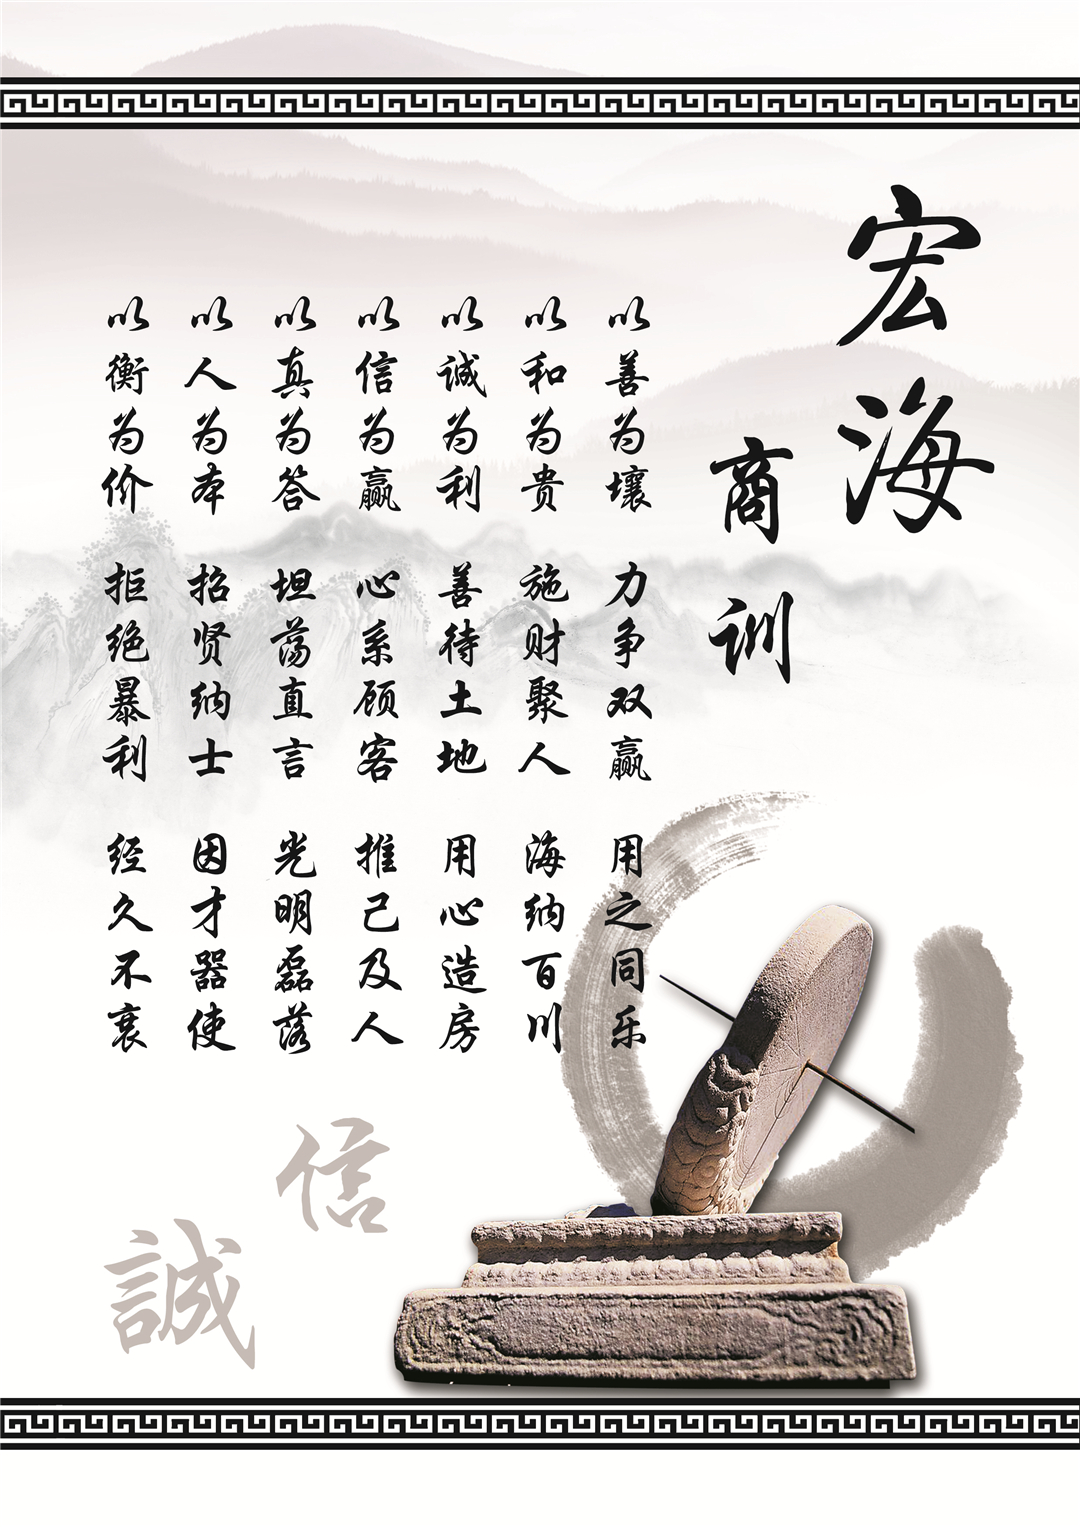 宏海
商训
以善为壤 力争双赢 用之同乐
以和为贵 施财聚人 海纳百川
以诚为利 善待土地 用心造房
以信为赢 心系顾客 推己及人
以真为答 坦荡直言 光明磊落
以人为本 招贤纳士 因才器使
以衡为价 拒绝暴利 经久不衰
信
誠